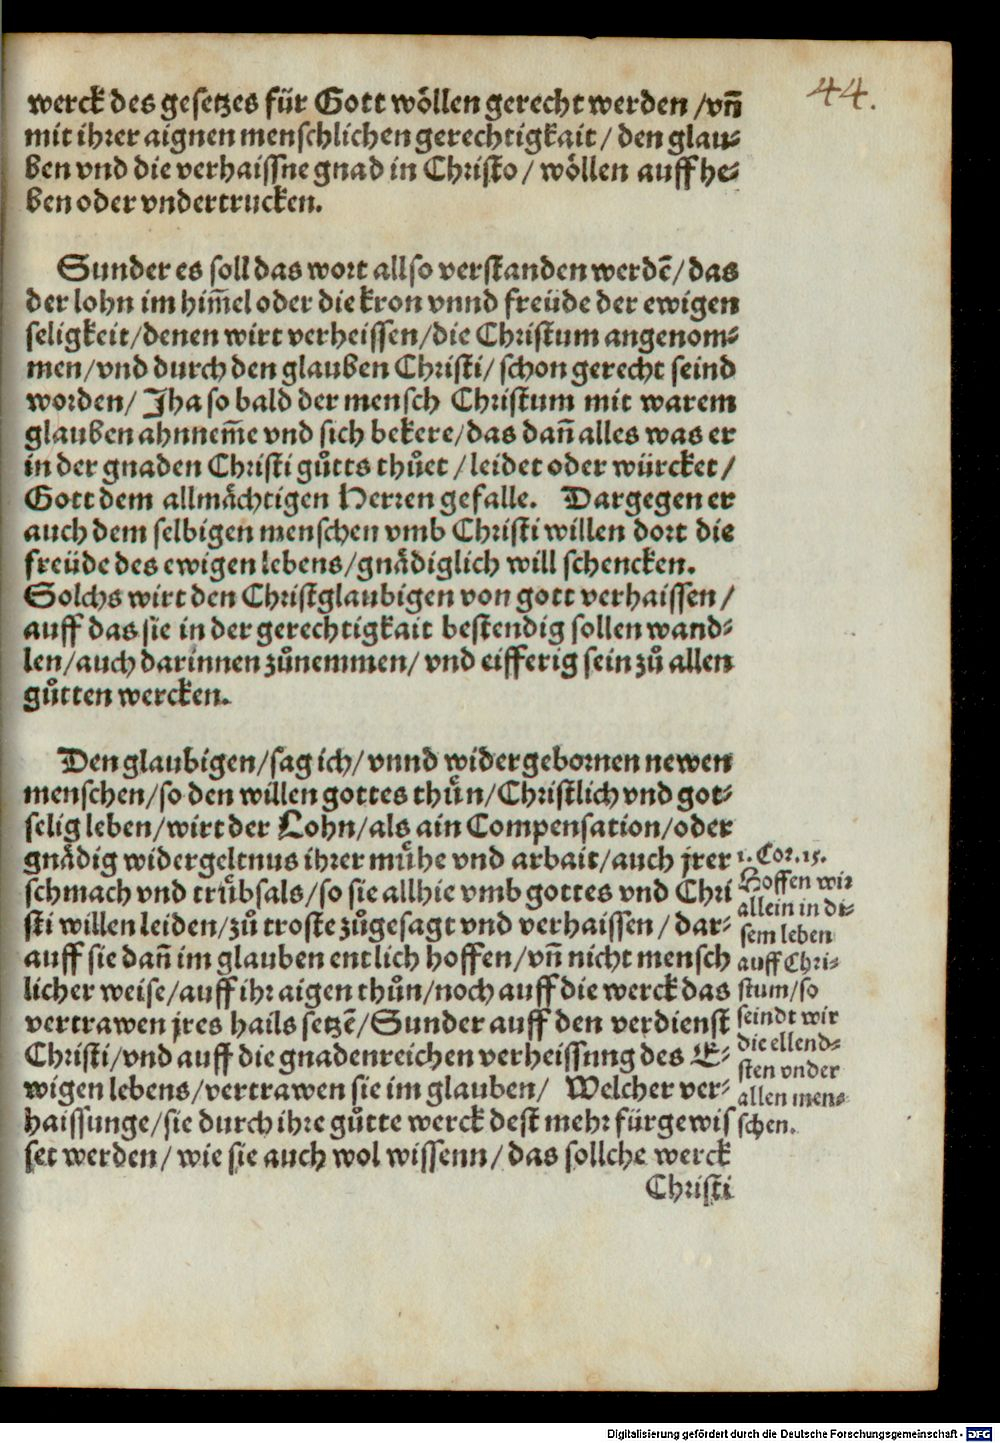 44.
werck des gesetzes für Gott wöllen gerecht werden /vñ
mit ihrer aignen menschlichen gerechtigkait / den glau-
ben vnd die verhaissne gnad in Christo / wöllen auff he-
ben oder vndertrucken.
Sunder es soll das wort allso verstanden werdē/ das
der lohn im him̄el oder die kron vnnd freüde der ewigen
seligkeit/denen wirt verheissen/die Christum angenom-
men/vnd durch den glauben Christi/ schon gerecht seind
worden/ Jha so bald der mensch Christum mit warem
glauben ahnnem̄e vnd sich bekere/das dañ alles was er
in der gnaden Christi gůtts thůet /leidet oder würcket/
Gott dem allmåchtigen Herren gefalle. Dargegen er
auch dem selbigen menschen vmb Christi willen dort die
freüde des ewigen lebens/gnådiglich will schencken.
Solchs wirt den Christglaubigen von gott verhaissen/
auff das sie in der gerechtigkait bestendig sollen wand-
len/auch darinnen zůnemmen/ vnd eifferig sein zů allen
gůtten wercken.
Den glaubigen/sag ich/ vnnd widergebornen newen
menschen/so den willen gottes thůn/Christlich vnd got-
selig leben/wirt der Lohn/als ain Compensation/oder
gnådig widergeltnus ihrer mühe vnd arbait/auch jrer
schmach vnd trübsals/so sie allhie vmb gottes vnd Chri
sti willen leiden/zů troste zůgesagt vnd verhaissen/ dar-
auff sie dañ im glauben entlich hoffen/vñ nicht mensch
licher weise/auff ihr aigen thůn/noch auff die werck das
vertrawen jres hails setzē/Sunder auff den verdienst
Christi/vnd auff die gnadenreichen verheissung des E-
wigen lebens/vertrawen sie im glauben/ Welcher ver-
haissunge/sie durch ihre gůtte werck dest mehr fürgewis
set werden/ wie sie auch wol wissenn/das sollche werck
Christi
1. Cor. 15.
Hoffen wir
allein in di-
sem leben
auff Chri-
stum/so
seindt wir
die ellend-
sten vnder
allen men-
schen.
Digitalisierung gefördert durch die Deutsche Forschungsgemeinschaft - DFG